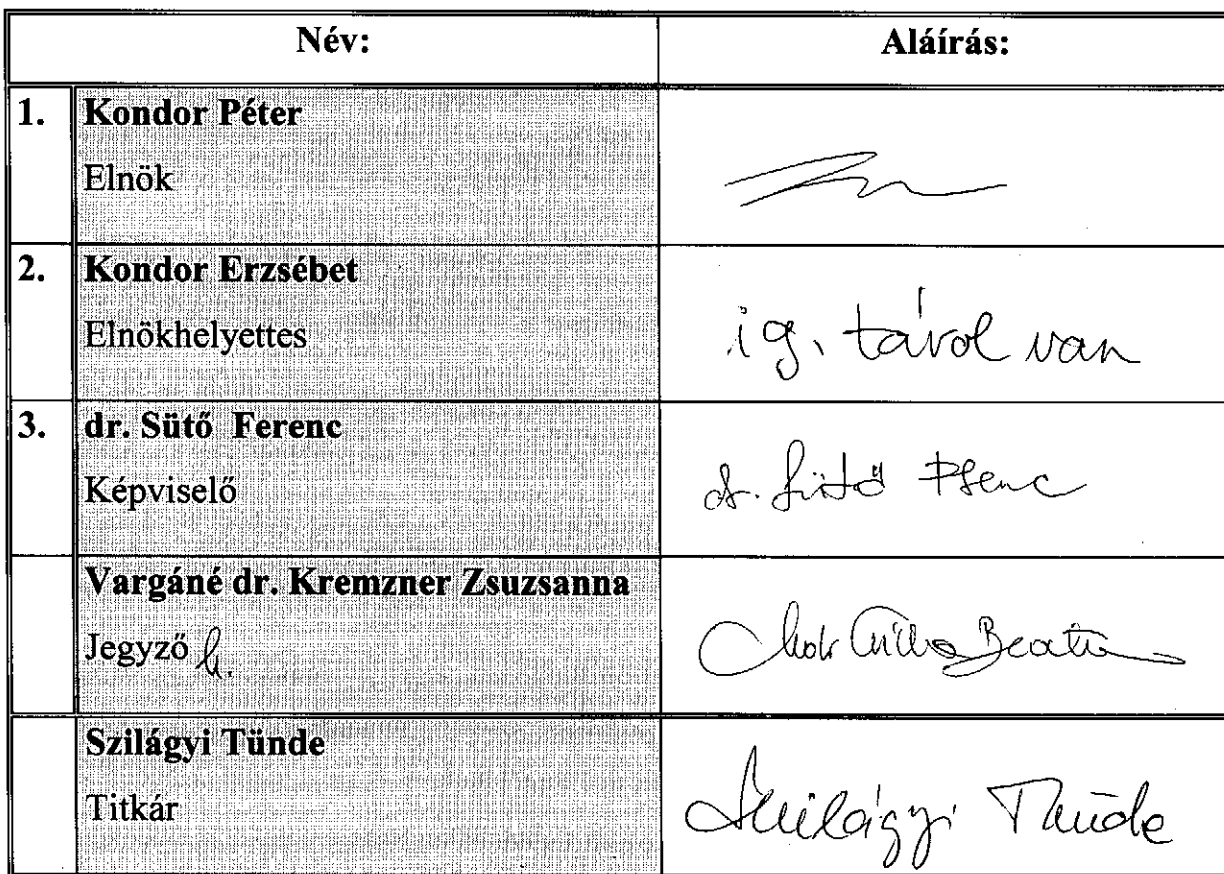 Név: Aláírás:
1. Kondor Péter
Elnök
2. Kondor Erzsébet
Elnökhelyettes
ig. távol van
3. dr. Sütő Ferenc
Képviselő
dr. Sütő Ferenc
Vargáné dr. Kremzner Zsuzsanna
Jegyző h.
Beata
Szilágyi Tünde
Titkár
Szilágyi Tünde